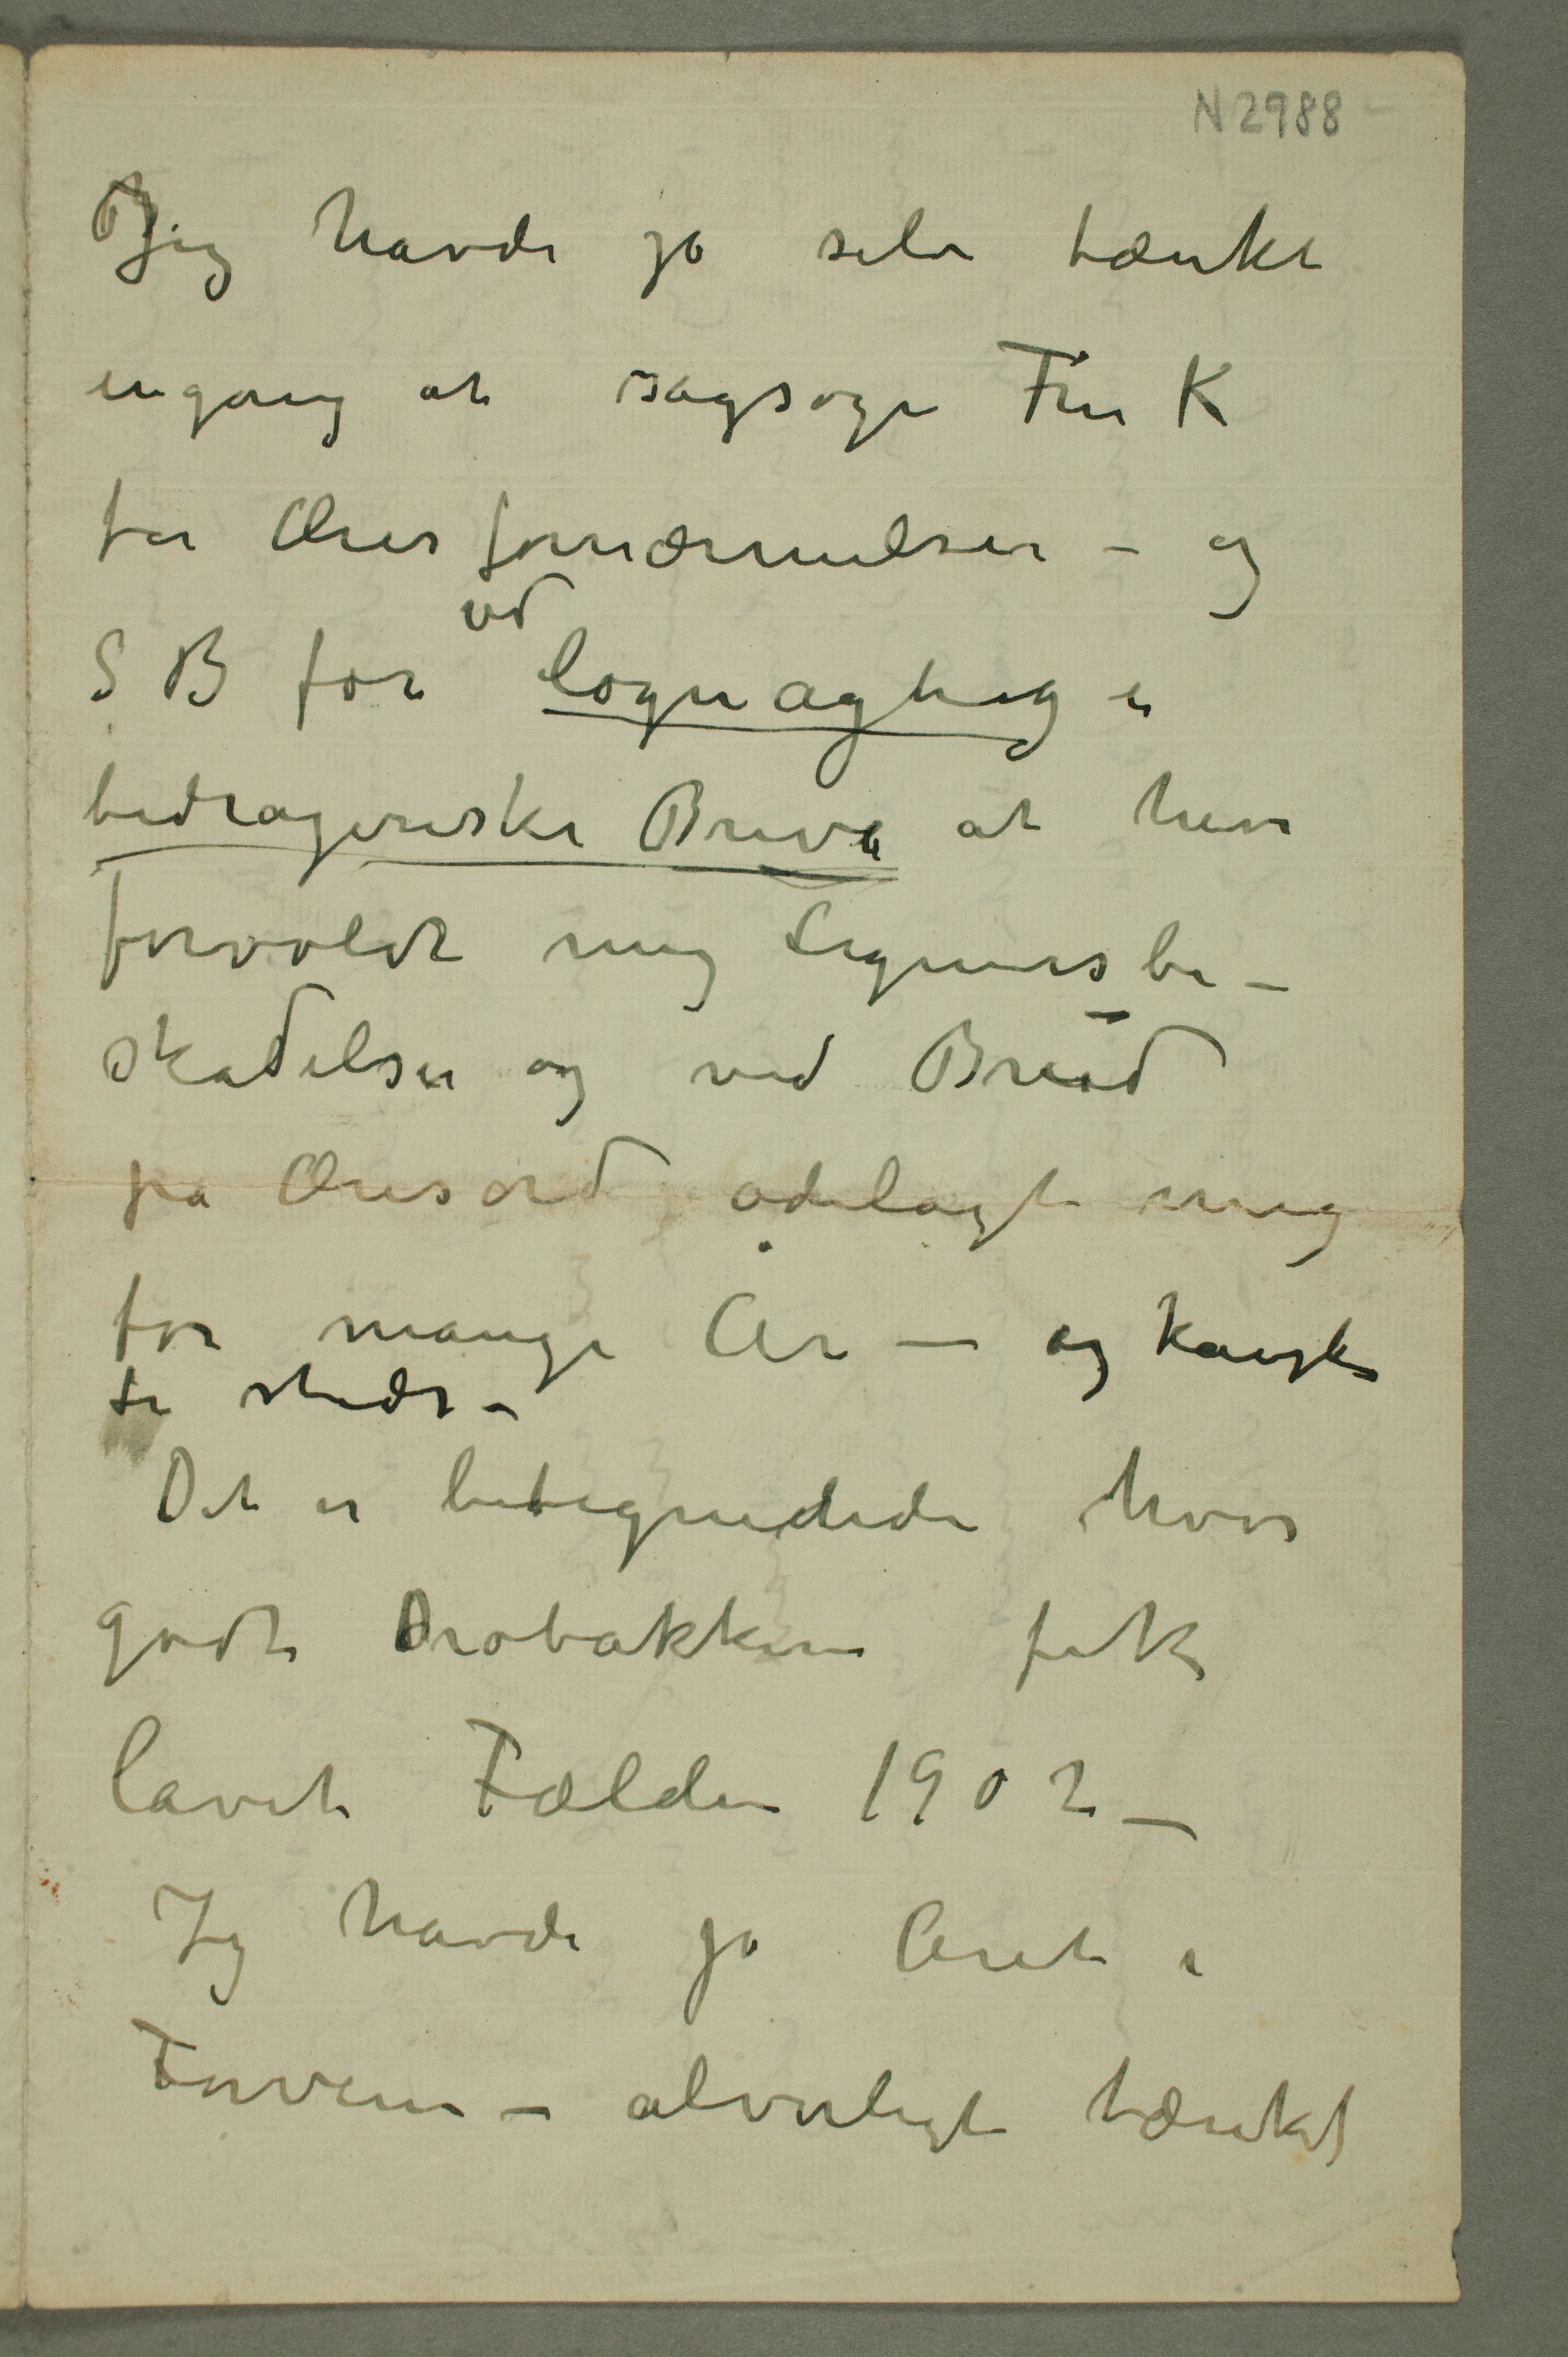 N 2988
Jeg havde jo selv tænkt
engang at sagsøge Fru K
for Æresfornærmelser – og
ved
S B for løgnagtige
bedrageriske Breve at have
forvoldt mig Legemsbe–
skadelser og ved Brud
på Æresord ødelagt mig
for mange År – og kanske
for stedse –
Det er betegnedede hvor
godt Drøbakkerne fik
lavet Fælden 1902 –
Jeg havde jo Året i
Forveien – alvorligt tænkt